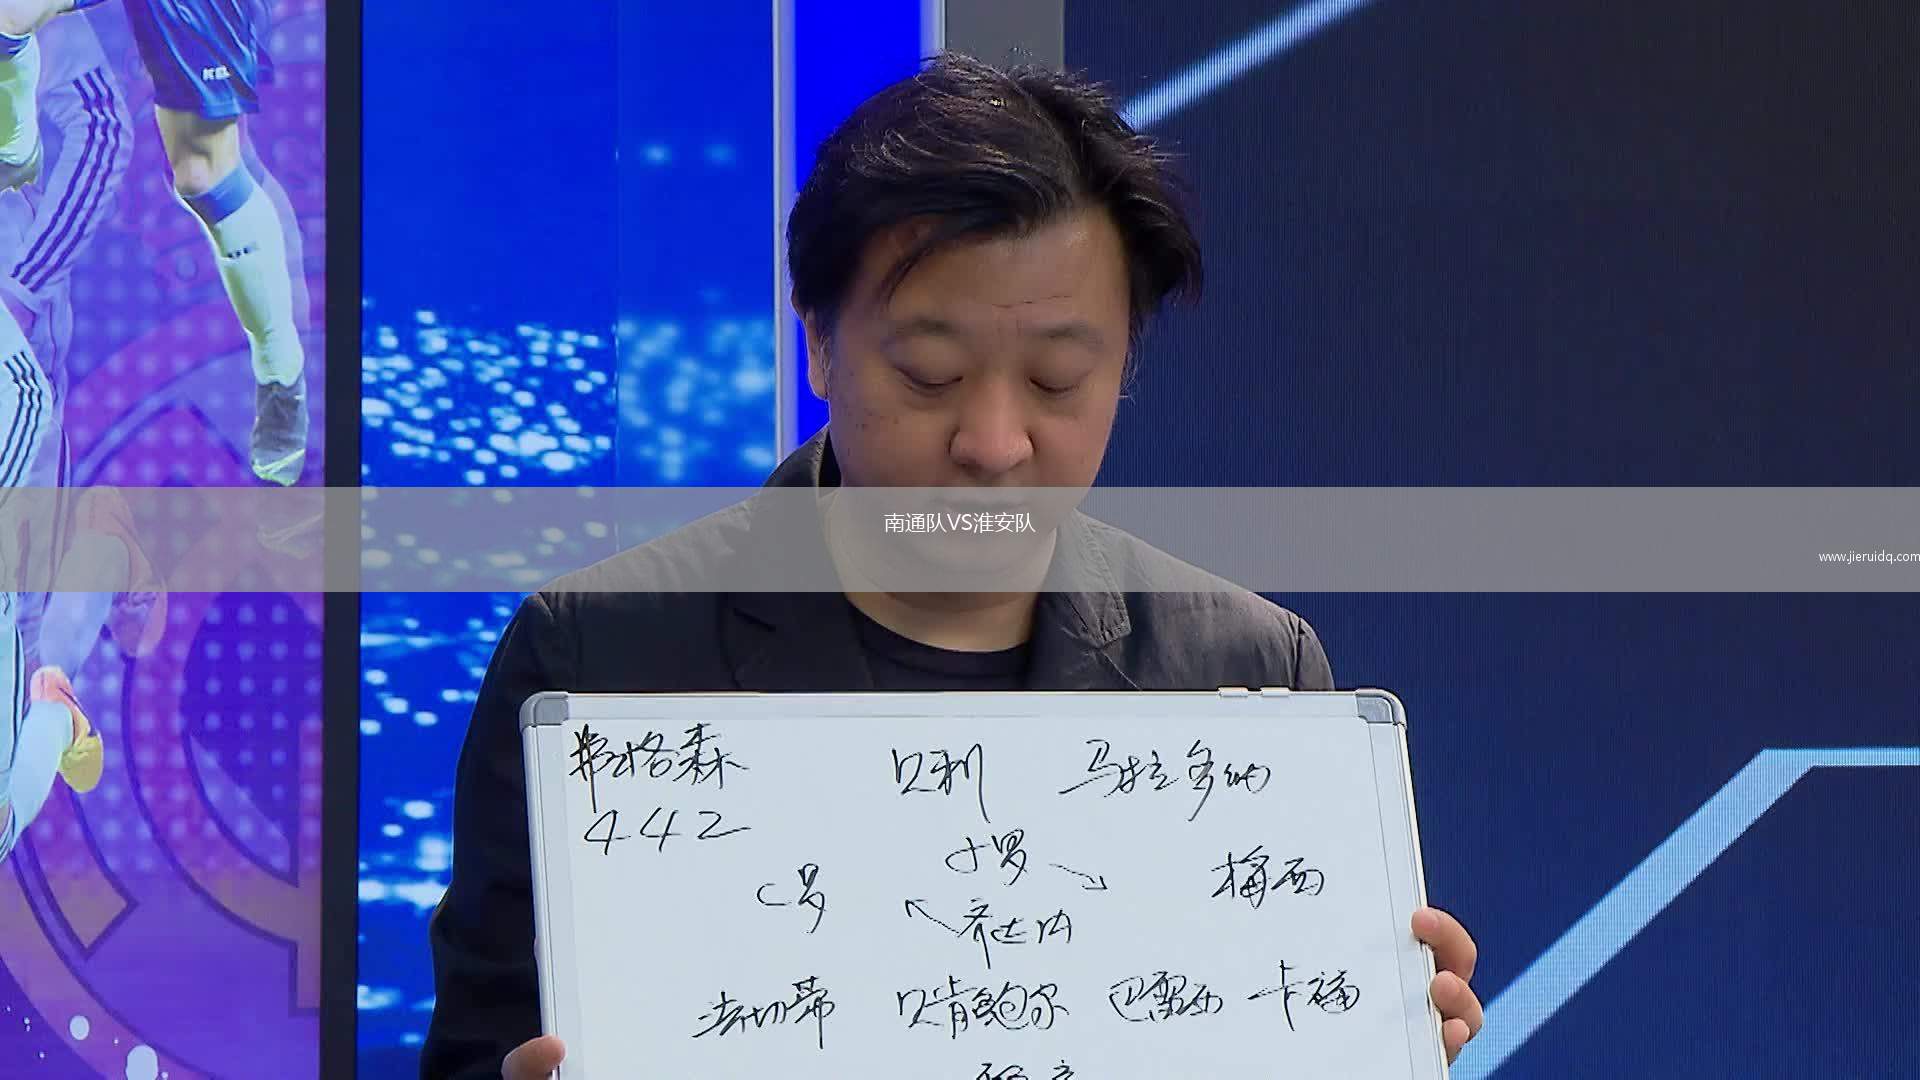 南通队VS淮安队
www.jieruidq.com
弗格森 贝利 马拉多纳
442
小罗
C罗 梅西
齐达内
法切蒂 贝肯鲍尔 巴雷西 卡福